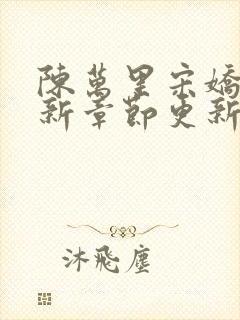 陳萬里宋嬌
新章節更新
沐飛塵